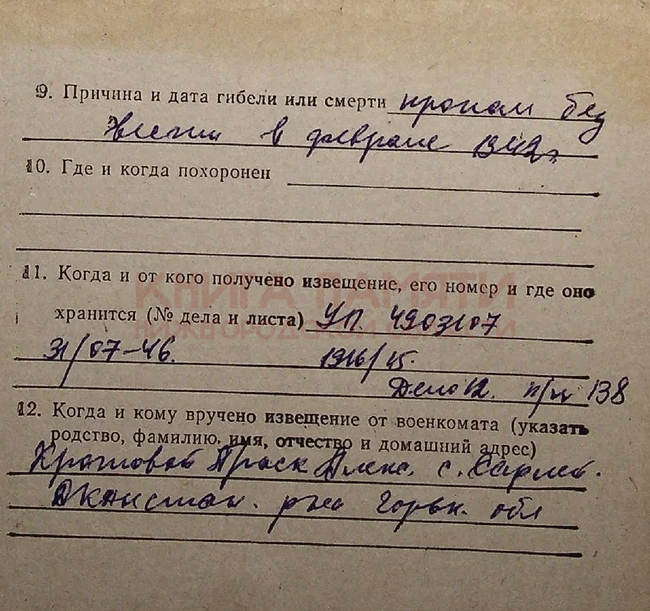 9. Причина и дата гибели или смерти пропал без
вести в феврале 1942г.
10. Где и когда похоронен
11. Когда и от кого получено извещение, его номер и где оно
КНИГА ПАМЯТИ
хранится (№ дела и листа) УП. 4903107
НИЖЕГОРОДСКОЙ ОБЛАСТИ
31/07-46. 1916/15.
Дело 12. 138
12. Когда и кому вручено извещение от военкомата (указать
родство, фамилию, имя, отчество и домашний адрес)
Кротовой Праск Алекс. с.
р-на Горьк. обл